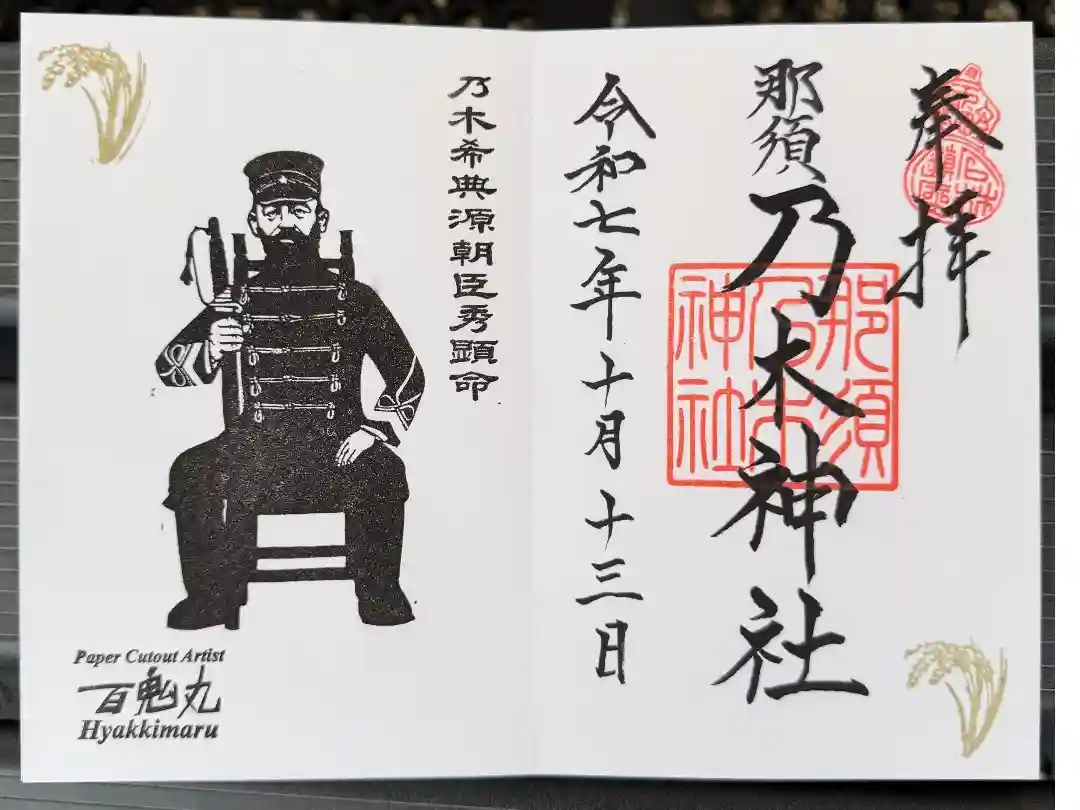 奉拝
那須乃木神社
那須
乃木
神社
令和七年十月十三日
乃木希典源朝臣秀顕命
Paper Cutout Artist
百鬼丸
Hyakkimaru